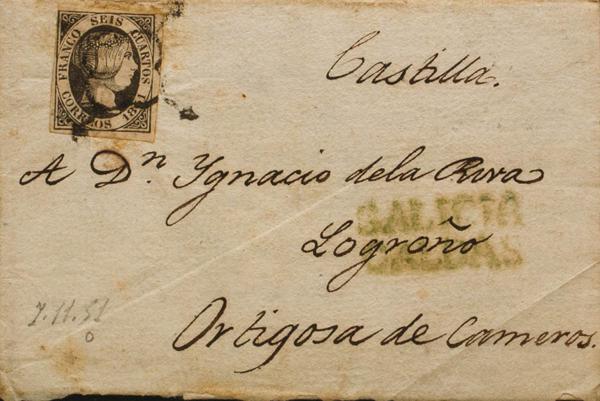 FRANCO SEIS CUARTOS
CORREOS 1851
Castilla.
A Dn. Ygnacio dela Riva
GALICIA
Logroño
Ortigosa de Cameros.
7.11.51